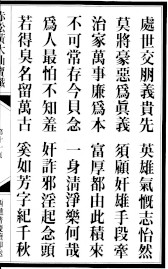 處世交朋義貴先
英雄氣慨志怡然
莫將豪惡為真義
須顧奸雄手段牽
治家萬事廉為本
富厚都由此積來
不可常存今貝念
一身清淨樂何哉
為人最怕不知羞
奸詐邪淫起念頭
若得臭名留萬古
奚如芳字紀千秋